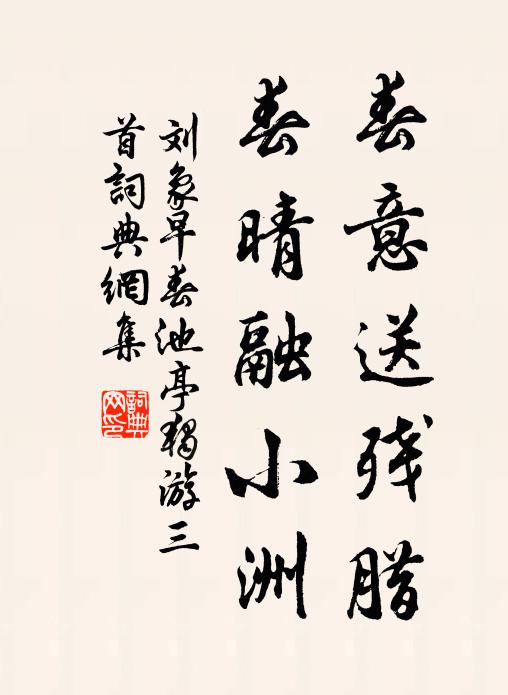 春意送残腊
春晴融小洲
刘象早春池亭独游三
首詞典網集
詞典
网印